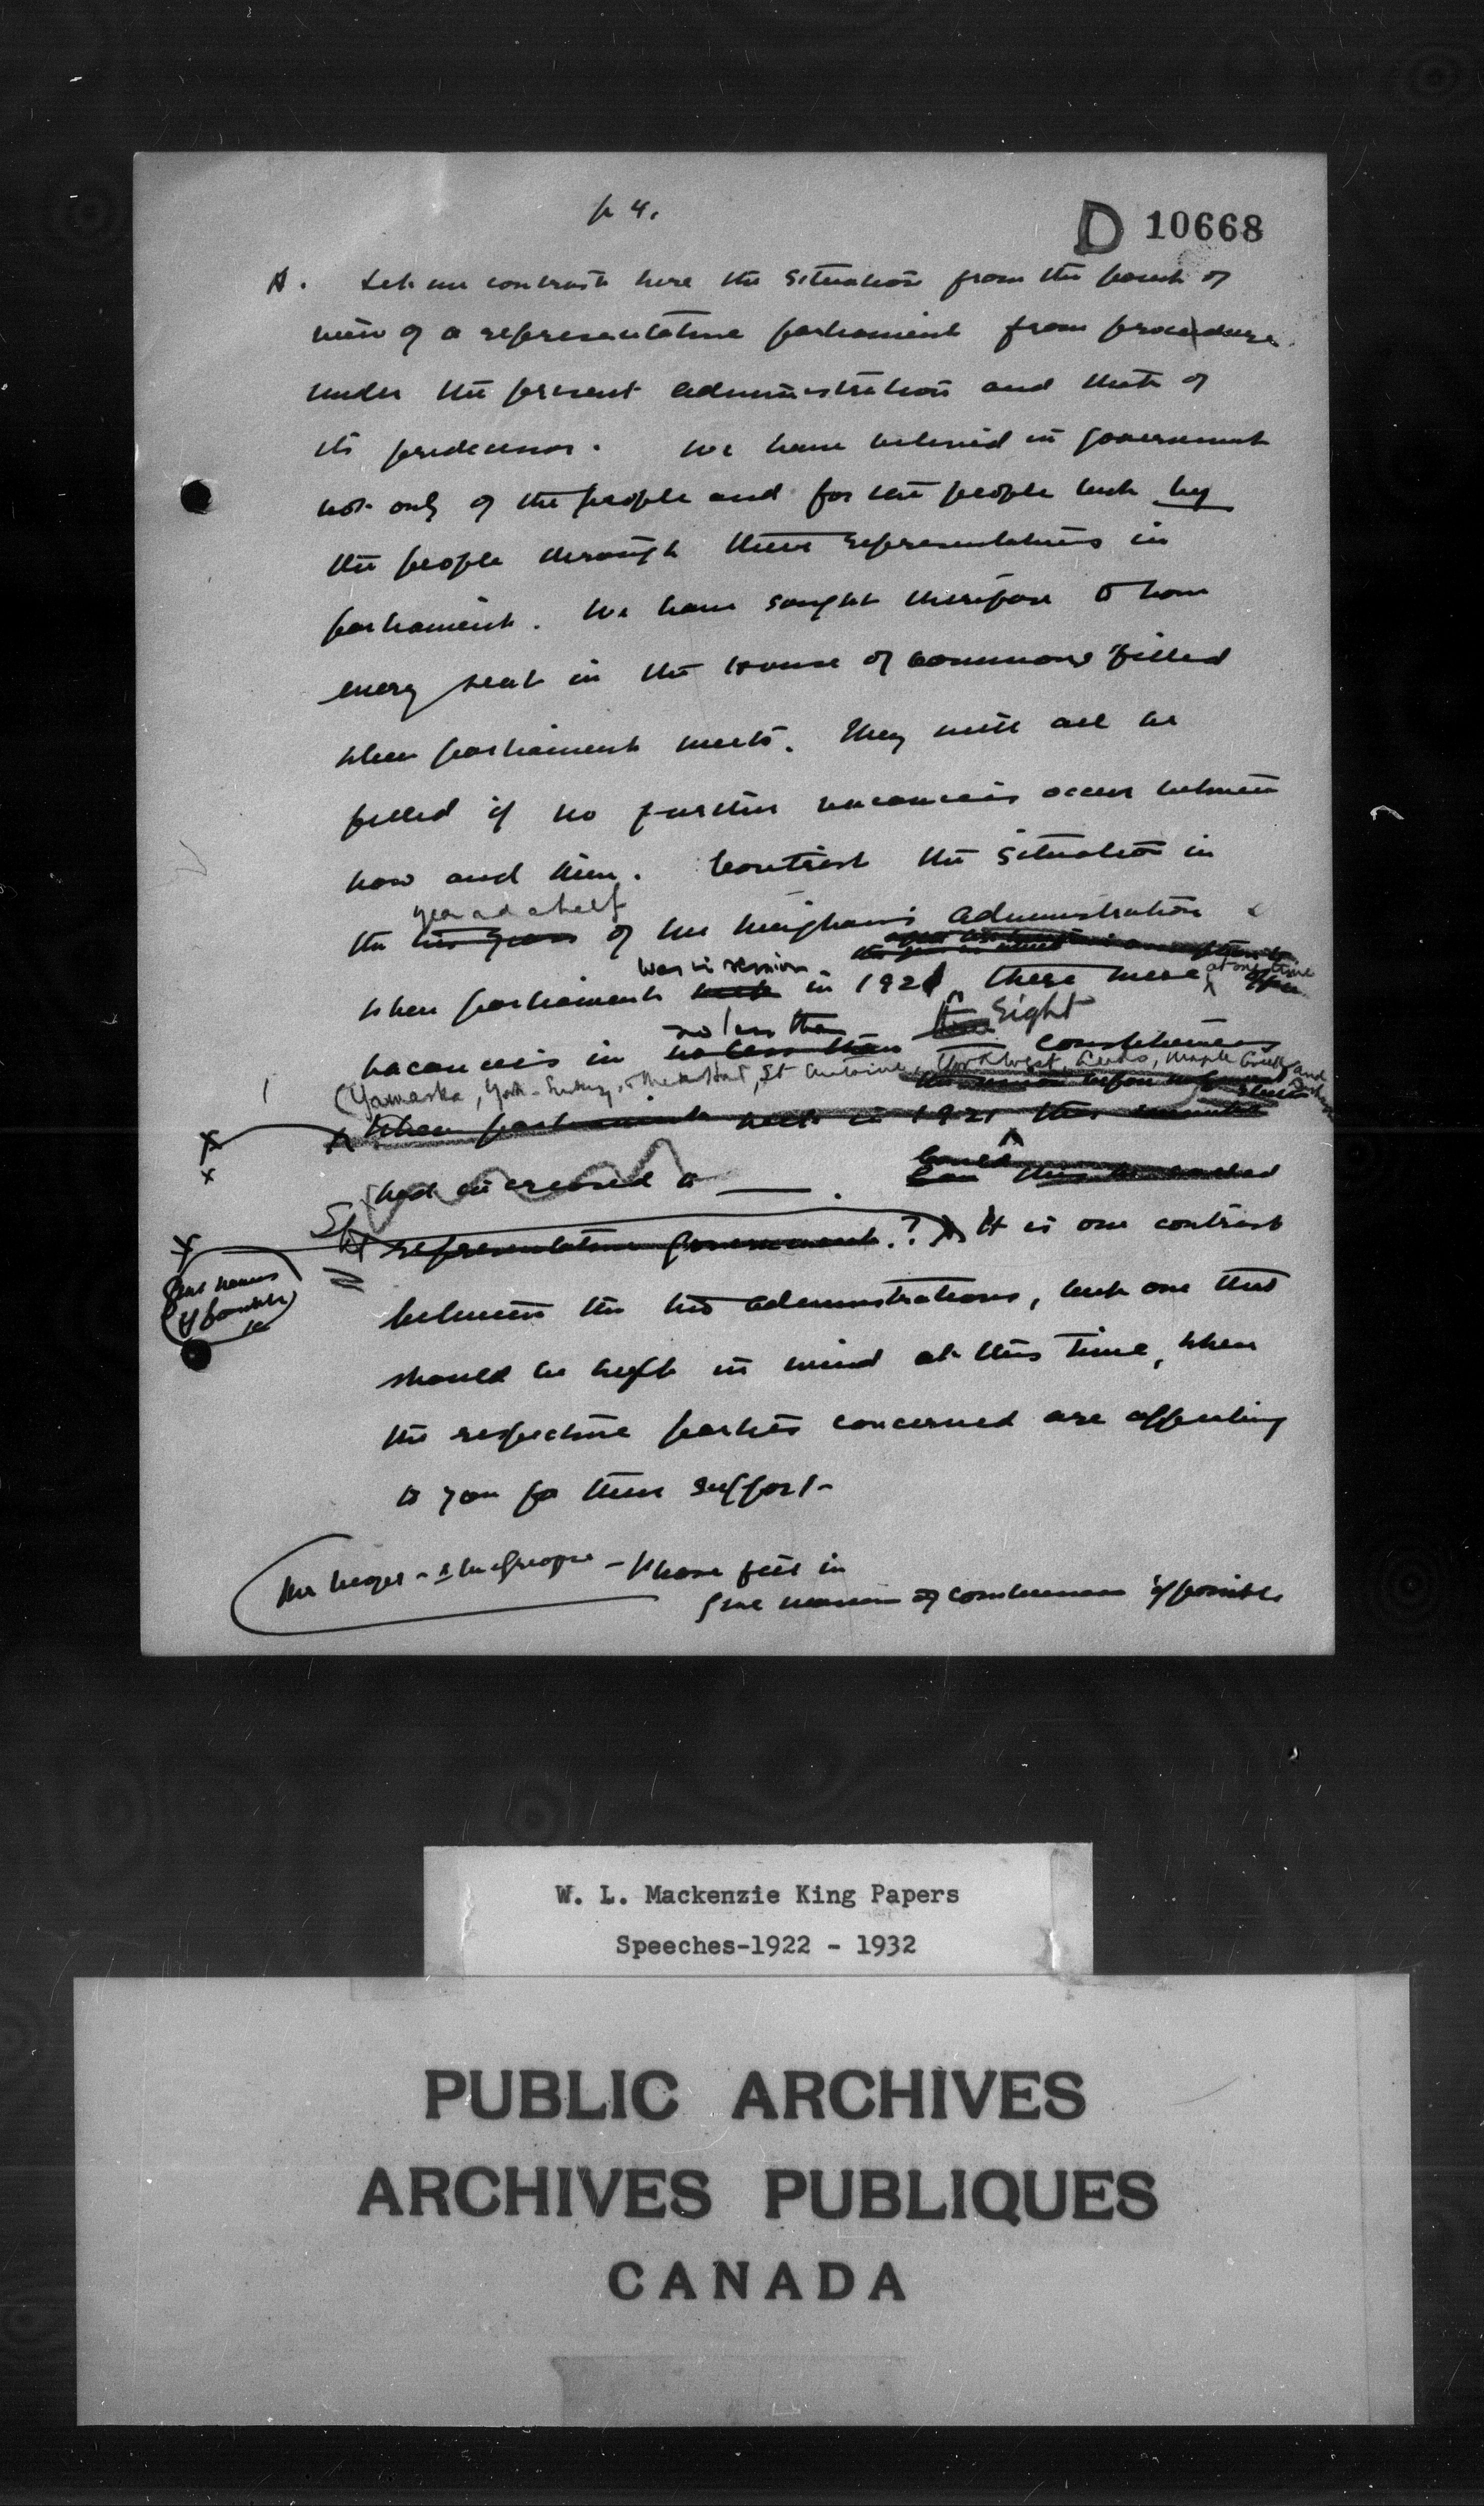 p 4.
D 10668
A. Let me contrast here the situation from the point of
view of a representative parliament from procedure
under the present administration and that of
its predecessor. We have believed in government
not only of the people and for the people but by
the people through their representatives in
parliament. We have sought therefore to have
every seat in the House of Commons filled
when parliament meets. They will all be
filled if no further vacancies occur between
now and then. Contrast the situation in
year and a half
the two years of Mr Meighen's administration
was in session
when parliament met in 1921 there were at one time
no less than Eight
vacancies in no less than constituencies
(Yamaska, York-Sunbury, Medicine Hat, St Antoine, West Leeds, Maple Creek and
when parliament met in 1921 this number
had increased to ____. Could this be called
representative government? It is one contrast
give names
if possible
between the two administrations, but one that
should be kept in mind at this time, when
the respective parties concerned are appealing
to you for their support-
Please fill in
give names of constituencies if possible
W. L. Mackenzie King Papers
Speeches-1922 - 1932
PUBLIC ARCHIVES
ARCHIVES PUBLIQUES
CANADA